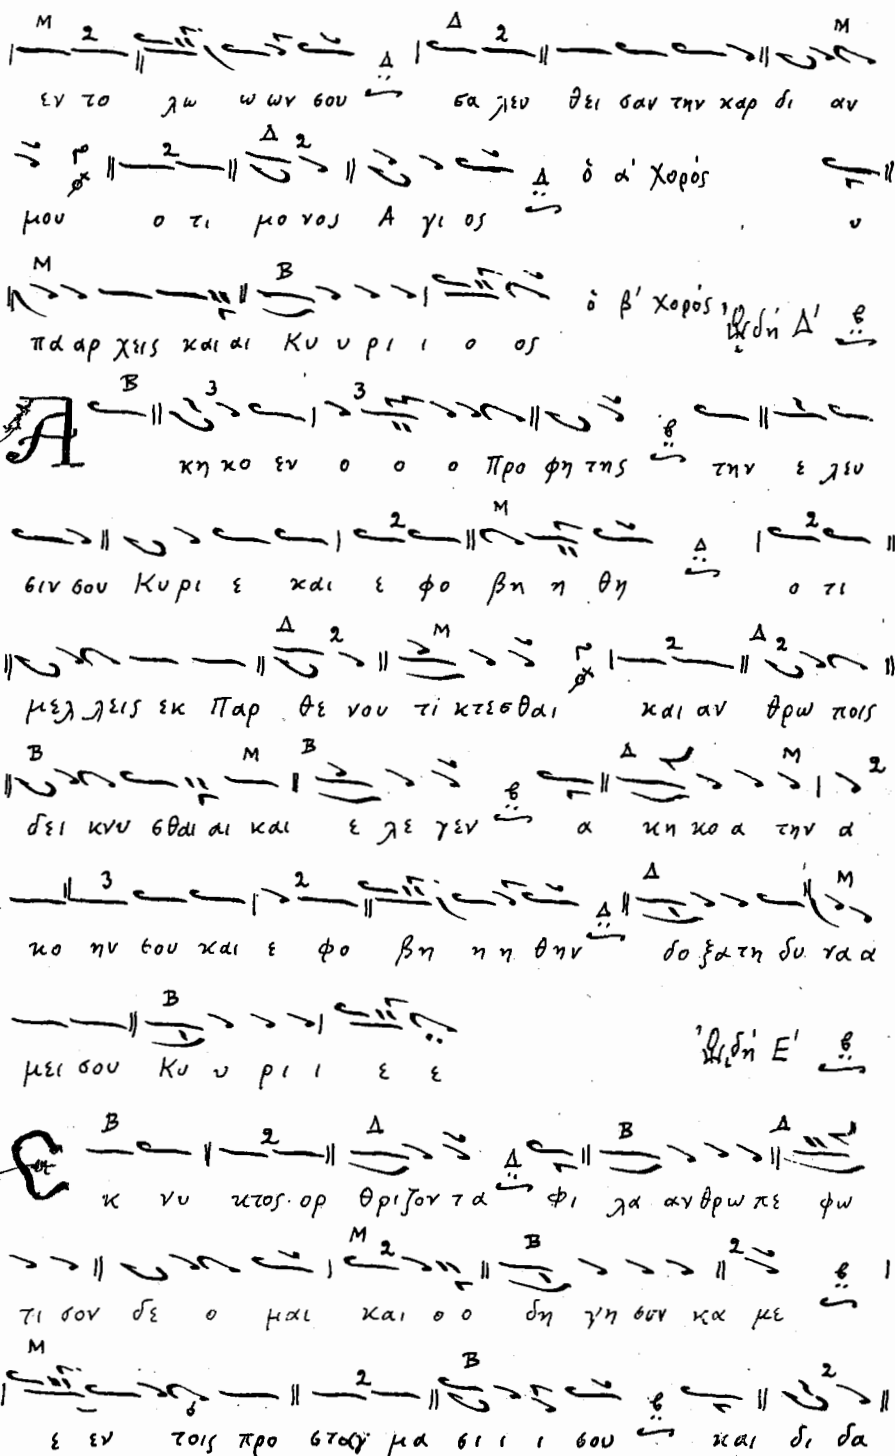 εν το λω ω ων σου σα λευ θει σαν την καρ δι αν
μου ο τι μο νος Α γι ος ὁ α' χορός υ
πα αρ χεις και αι Κυ υ ρι ι ο ος ὁ β' χορός ᾨδή Δ'
Α κη κο εν ο ο ο προ φη της την ε λευ
σιν σου Κυ ρι ε και ε φο βη η θη ο τι
μελ λεις εκ Παρ θε νου τι κτεσθαι και αν θρω ποις
δει κνυ σθαι αι και ε λε γεν α κη κο α την α
κο ην σου και ε φο βη η η θην δο ξα τη δυ να α
μει σου Κυ υ ρι ι ι ε ε ᾨδή Ε'
Ε κ νυ κτος ορ θρι ζον τα φι λα αν θρω πε φω
τι σον δε ο μαι και ο ο δη γη σον κα με
ε εν τοις προ σταγ μα σι ι ι σου και δι δα